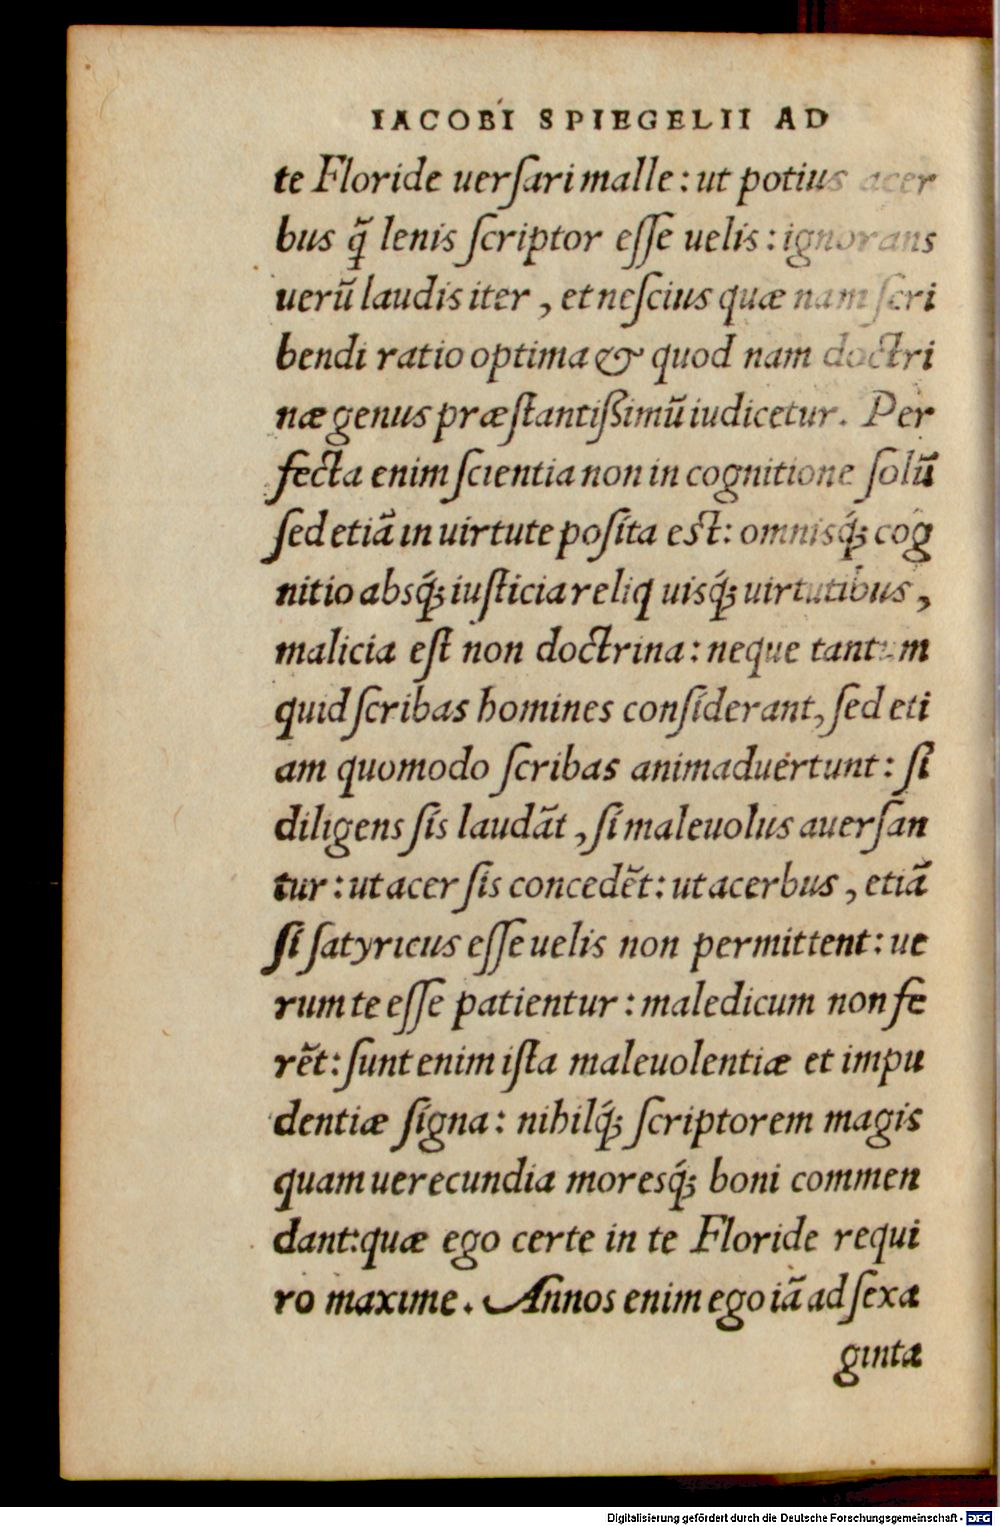 IACOBI SPIEGELII AD
te Floride uerſari malle: ut potius acer
bus q̃ lenis ſcriptor eſſe uelis: ignorans
uerũ laudis iter, et neſcius quæ nam ſcri
bendi ratio optima & quod nam doctri
næ genus præſtantißimũ iudicetur. Per
fecta enim ſcientia non in cognitione ſolũ
ſed etiã in uirtute poſita eſt: omnisq́; cog
nitio absq́; iuſticia reliq uisq́; uirtutibus,
malicia eſt non doctrina: neque tantum
quid ſcribas homines conſiderant, ſed eti
am quomodo ſcribas animaduertunt: ſi
diligens ſis laudãt, ſi maleuolus auerſan
tur: ut acer ſis concedẽt: ut acerbus, etiã
ſi ſatyricus eſſe uelis non permittent: ue
rum te eſſe patientur: maledicum non fe
rẽt: ſunt enim iſta maleuolentiæ et impu
dentiæ ſigna: nihilq́; ſcriptorem magis
quam uerecundia moresq́; boni commen
dant: quæ ego certe in te Floride requi
ro maxime. Annos enim ego iã ad ſexa
ginta
Digitalisierung gefördert durch die Deutsche Forschungsgemeinschaft - DFG